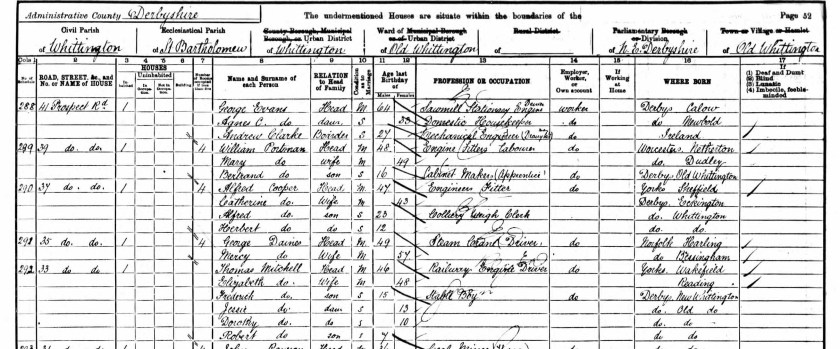 Administrative County Derbyshire The undermentioned Houses are situate within the boundaries of the Page 52
Civil Parish Ecclesiastical Parish County Borough, Municipal Borough, or Urban District Ward of Municipal Borough or of Urban District Rural District Parliamentary Borough or Division Town or Village or Hamlet
of Whittington of St Bartholomew of Whittington of Old Whittington of of N.E. Derbyshire of Old Whittington
1 2 3 4 5 6 7 8 9 10 11 12 13 14 15 16 17
ROAD, STREET, &c., and No. or NAME of HOUSE HOUSES Uninhabited Name and Surname of each Person RELATION to Head of Family Condition as to Marriage Age last Birthday of Males Females PROFESSION OR OCCUPATION Employer, Worker, or Own account If Working at Home WHERE BORN (1) Deaf and Dumb (2) Blind (3) Lunatic (4) Imbecile, feeble-minded
288 41 Prospect Rd. 1 George Evans Head M 64 Sawmill Stationary Engine Driver worker Derbys Calow
Agnes C. do daur. S 33 Domestic Housekeeper do do Newbold
Andrew Clarke Boarder S 27 Mechanical Engineer do Ireland
289 39 do. do. 1 4 William Head M 48 Engine Fitters Labourer do Worcester Netherton
Mary do wife M 49 do. Dudley
Bertrand do son S 16 Cabinet Makers (Apprentice) do Derby Old Whittington
290 37 do. do. 1 4 Alfred Cooper Head M 47 Engineers Fitter do Yorks Sheffield
Catherine do. Wife M 43 Derbys. Eckington
Alfred do. son S 23 Colliery Weigh Clerk do. Whittington
Herbert do do S 12 do. do.
291 35 do. do. 1 4 George Daines Head M 49 Steam Crane Driver. do Norfolk Harling
Mercy do Wife M 57 do Bressingham
292 33 do. do. 1 Thomas Mitchell Head M 46 Railway Engine Driver do Yorks. Wakefield
Elizabeth do. Wife M 48 Reading
Frederick do. son S 15 Stable Boy do Derby. New Whittington
Jessie do daur S 13 do. Old do
Dorothy do. do S 10 do. do
Robert do son S 7 do do